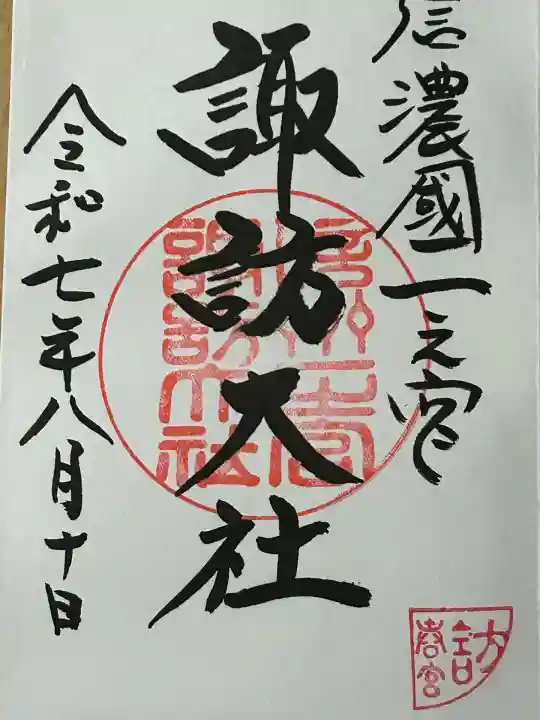 信濃國一之宮
諏訪大社
令和七年八月十日
諏訪大社
訪
春宮